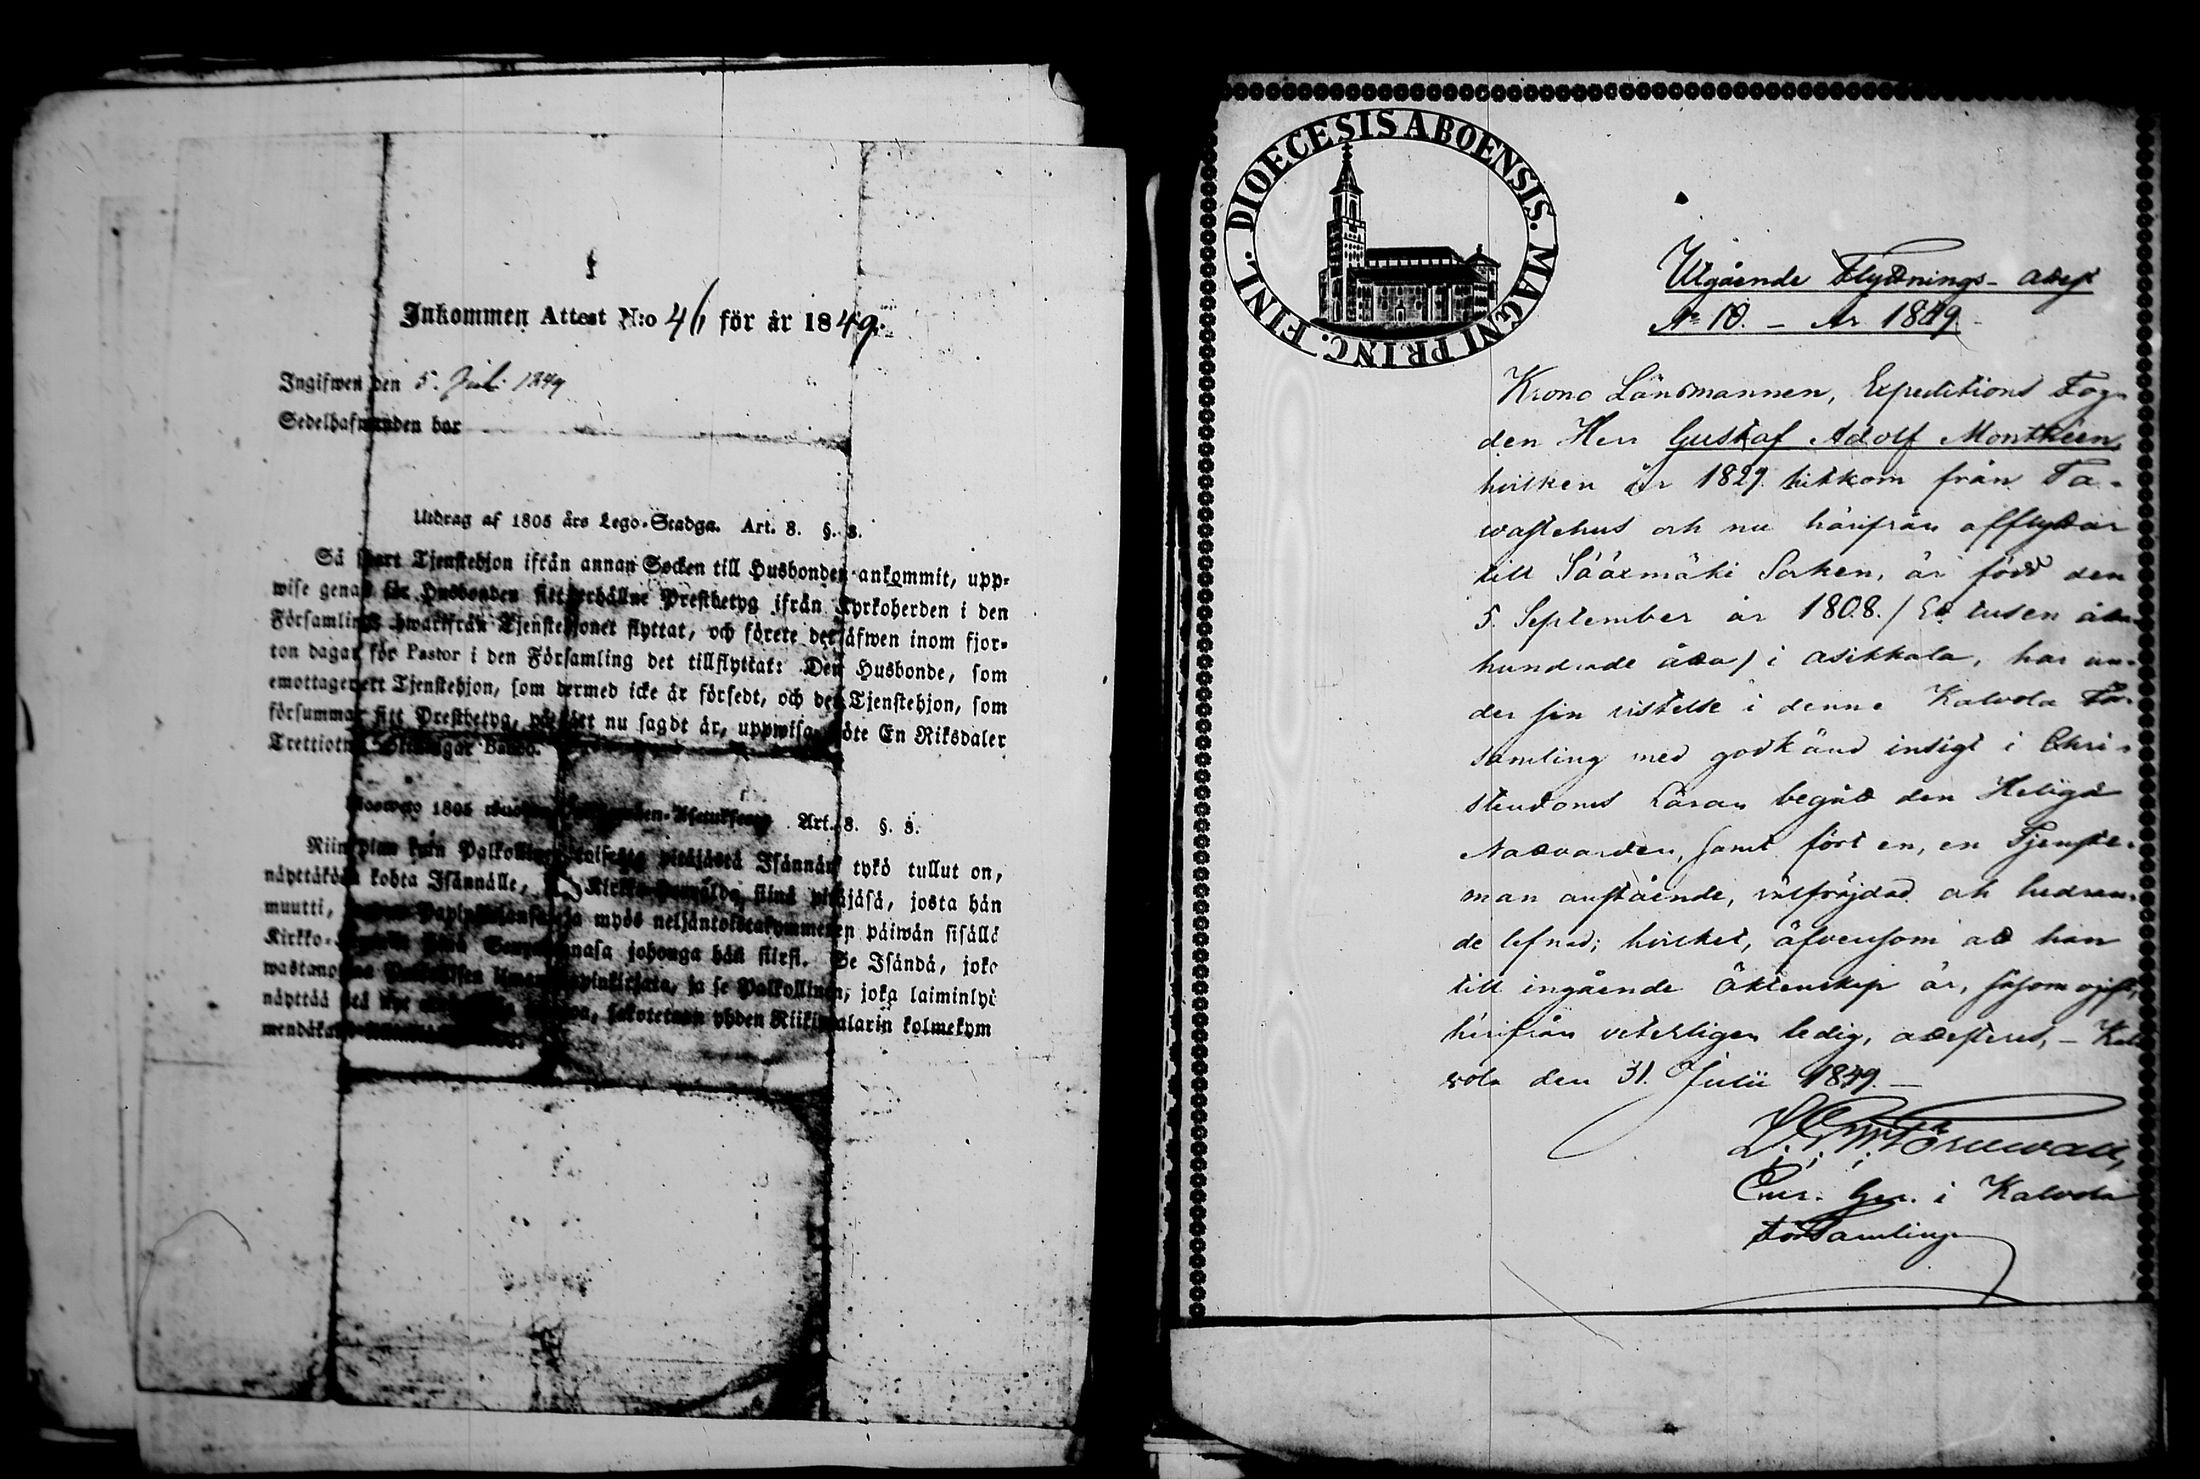 Inkommen Attest N:o 46 för år 1849.
Ingifwen den 5. Juli 1849
Sedelhafwanden bor
Utdrag af 1805 års Lego-Stadga. Art. 8. §. 3.
Så snart Tjenstehjon ifrån annan Socken till Husbonden ankommit, upp-
wise genast för Husbonden sitt erhållne Prestbetyg ifrån Kyrkoherden i den
Församling hwarifrån Tjenstehjonet flyttat, och förete det äfwen inom fjor-
ton dagar för Pastor i den Församling det tillflyttat: Den Husbonde, som
emottager ett Tjenstehjon, som dermed icke är försedt, och det Tjenstehjon, som
försummar sitt Prestbetyg, på sätt nu sagdt är, uppwisa, böte En Riksdaler
Trettiotwå Skillingar Banco.
1805 Art. 8. §. 3.
Niin pian kuin Palkollinen toisesta pitäjästä Isännän tykö tullut on,
näyttäkään kohta Isännälle, siinä pitäjäsä, josta hän
muutti, ja myös neljäntoistakymmenen päiwän sisällä
Kirkko- Seurakunnasa johonga hän siirsi. Se Isändä, joka
ja se Palkollinen, joka laiminlyö
näyttää yhden Riikintalarin kolmekym
DIOECESIS ABOENSIS. MAGNI PRINC. FINL.
Utgående Flyttnings-attest
No 10. – År 1849.
Krono Länsmannen, Expeditions Fog-
den Herr Gustaf Adolf Monthéen,
hvilken år 1829 hitkom från Ta-
wastehus och nu härifrån afflyttar
till Sääxmäki Socken, är född den
5. September år 1808. / Ett tusen åtta
hundrade åtta / i Asikkala, har un-
der sin vistelse i denne Kalvola För-
samling med godkänd insigt i Chri-
stendoms Läran begått den Heliga
Nattvarden, samt fört en, en Tjenste-
man anstående, välfräjdad och hedran-
de lefnad; hvilket, äfvensom att han
till ingående Äktenskap är, såsom ogift,
härifrån veterligen ledig, attesteras, – Kal
vola den 31. Julii 1849. –
Cur. Ger. i Kalvola
Församling